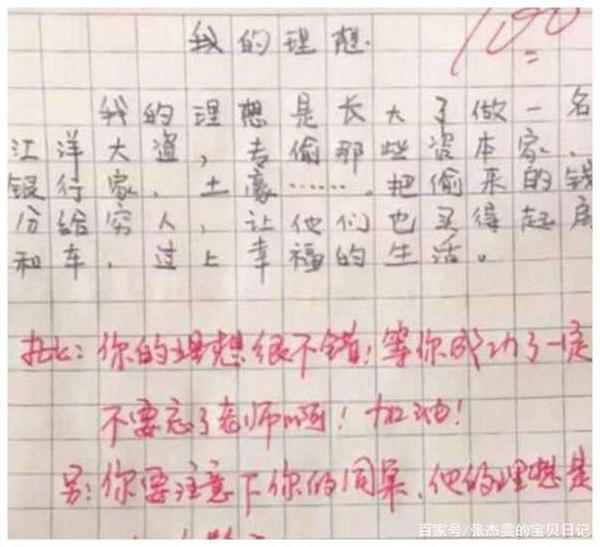 我的理想
100
我的理想是长大了做一名
江洋大盗，专偷那些资本家、
银行家、土豪……。把偷来的钱
分给穷人，让他们也买得起房
和车，过上幸福的生活。
批：你的理想很不错！等你成功了一定
不要忘了老师啊！加油！
另：你要注意下你的同桌，他的理想是
百家号/张杰雯的宝贝日记